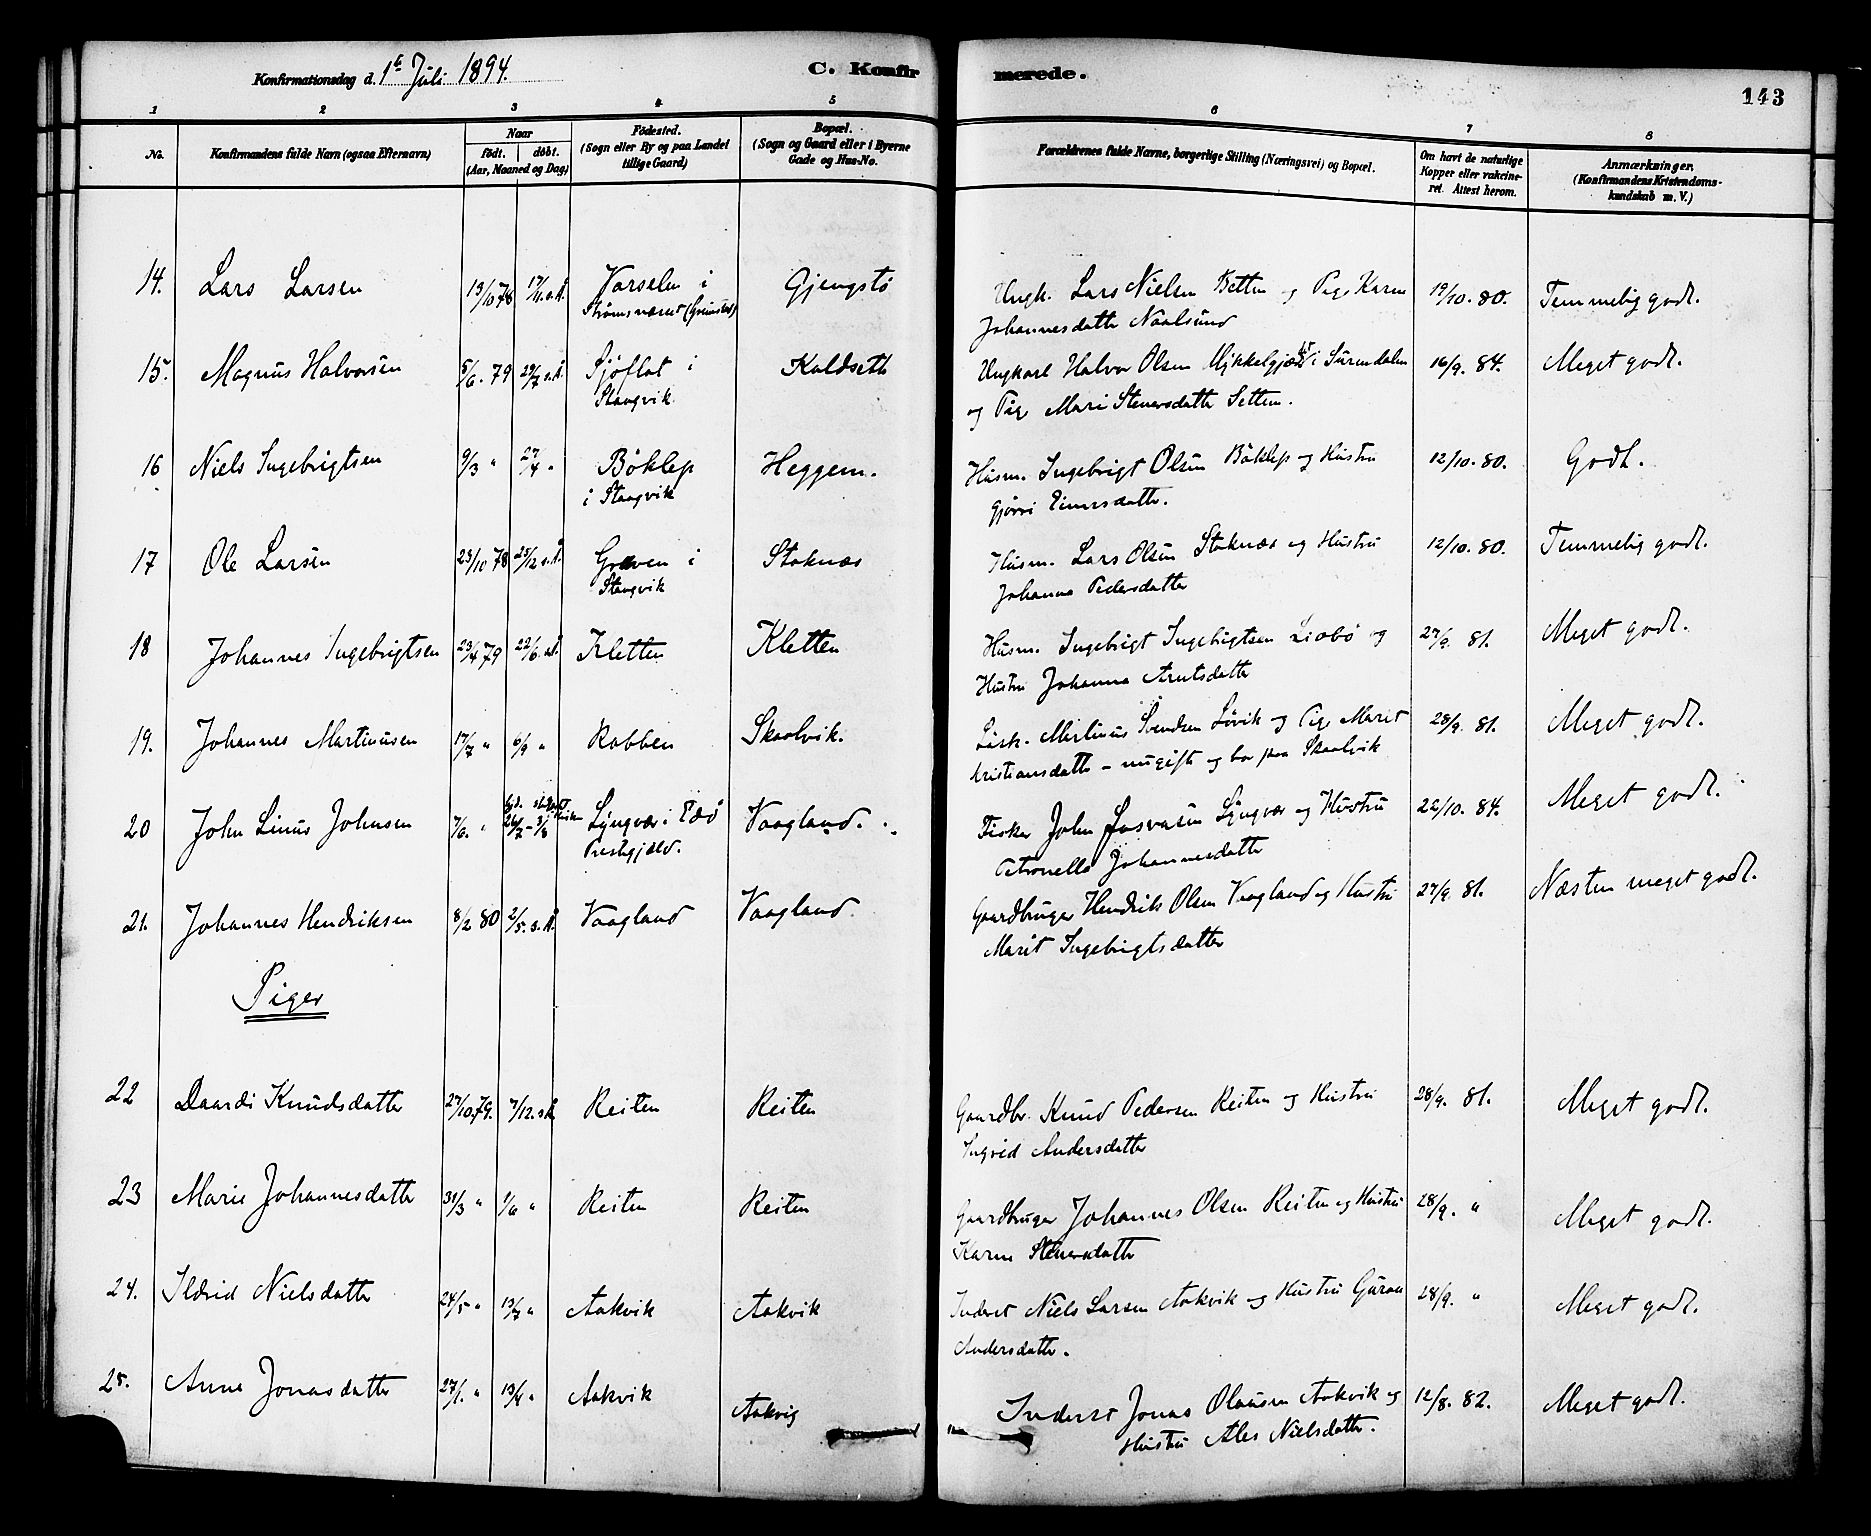 Konfirmationsdag d. 1ste Juli 1894.
C. Konfirmerede.
143
1 2 3 4 5 6 7 8
No.
Konfirmandens fulde Navn (ogsaa Efternavn)
Naar
født. døbt.
(Aar, Maaned og Dag)
Fødested.
(Sogn eller By og paa Landet
tillige Gaard)
Bopæl.
(Sogn og Gaard eller i Byerne
Gade og Hus-No.
Forældrenes fulde Navne, borgerlige Stilling (Næringsvei) og Bopæl.
Om havt de naturlige
Kopper eller vakcine-
ret. Attest herom.
Anmærkninger.
(Konfirmandens Kristendoms-
kundskab m. V.)
14. Lars Larsen 13/10 78 17/11 s.A. Varselen i Gjengstø Ungk. Lars Nielsen Betten og Pige Karen 19/10. 80. Temmelig godt.
Strømsnæset (Grimstad) Johannesdatter Naalsund
15. Magnus Halvorsen 5/6. 79 29/7 s.A. Sjøflot i Koldseth Ungkarl Halvor Olsen Mykkelgjært i Surendalen 16/9. 84. Meget godt.
Stangvik og Pige Mari Stenersdatter Settem.
16 Niels Ingebrigtsen 9/3 " 27/4 " Bøklep Heggem. Husm. Ingebrigt Olsen Bøklep og Hustru 12/10. 80. Godt.
i Stangvik Gjøri Einersdatter.
17 Ole Larsen 23/10 78 25/12 s.A. Græven i Stoknæs Husm. Lars Olsen Stoknæs og Hustru 12/10. 80. Temmelig godt.
Stangvik Johanna Pedersdatter
18 Johannes Ingebrigtsen 23/4 79 22/6. s.A. Kletten Kletten Husm. Ingebrigt Ingebrigtsen Liabø og 27/9. 81. Meget godt.
Hustru Johanna Arntsdatter
19. Johannes Martinusen 17/7 " 6/9 " Robben Skaalvik. Løsk. Martinus Svendsen Løvik og Pige Marit 28/9. 81. Meget godt.
Kristiansdatter – nugifte og bor paa Skaalvik
20 John Linus Johnsen 7/6. " 26/7 - 3/8 Lyngvær i Edø Vaagland. Fisker John Lyngvær og Hustru 22/10. 84. Meget godt.
Prestgjæld. Petronella Johannesdatter
21. Johannes Hendriksen 8/2 80 2/5. s.A. Vaagland Vaagland. Gaardbruger Hendrik Olsen Vaagland og Hustru 27/9. 81. Næsten meget godt.
Marit Ingebrigtsdatter
Piger
22 Daardi Knudsdatter 27/10 79. 7/12. s.A. Reiten Reiten Gaardbr. Knud Pedersen Reiten og Hustru 28/9. 81. Meget godt.
Ingrid Andersdatter
23 Marie Johannesdatter 31/3 " 1/6 " Reiten Reiten Gaardbruger Johannes Olsen Reiten og Hustru 28/9. " Meget godt.
Karen Stenersdatter
24. Ildrid Nielsdatter 24/5 " 13/7 " Aakvik Aakvik Inderst Niels Larsen Aakvik og Hustru Guroe 28/9. " Meget godt.
Andersdatter.
25. Anne Jonasdatter 27/1. " 13/4 " Aakvik Aakvig Inderst Jonas Olausen Aakvik og 12/8. 82. Meget godt.
Hustru Ales Nielsdatter.